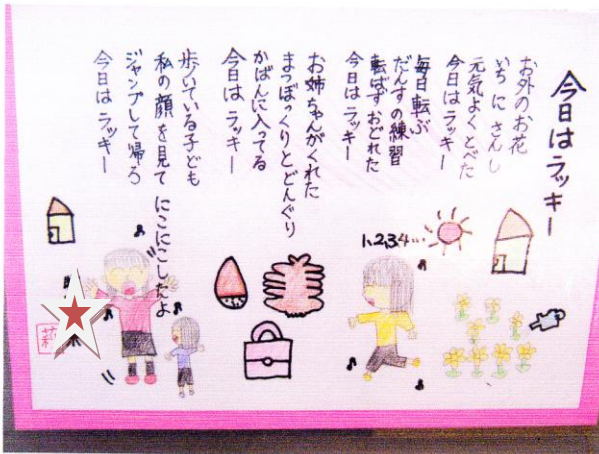 今日はラッキー
お外のお花
いち に さん し
元気よくとべた
今日は ラッキー
毎日 転ぶ
だんすの練習
転ばず おどれた
今日は ラッキー
お姉ちゃんがくれた
まつぼっくりとどんぐり
かばんに入ってる
今日は ラッキー
歩いている子ども
私の顔を見て にこにこしたよ
ジャンプして帰ろ
今日は ラッキー
1、2、3、4…